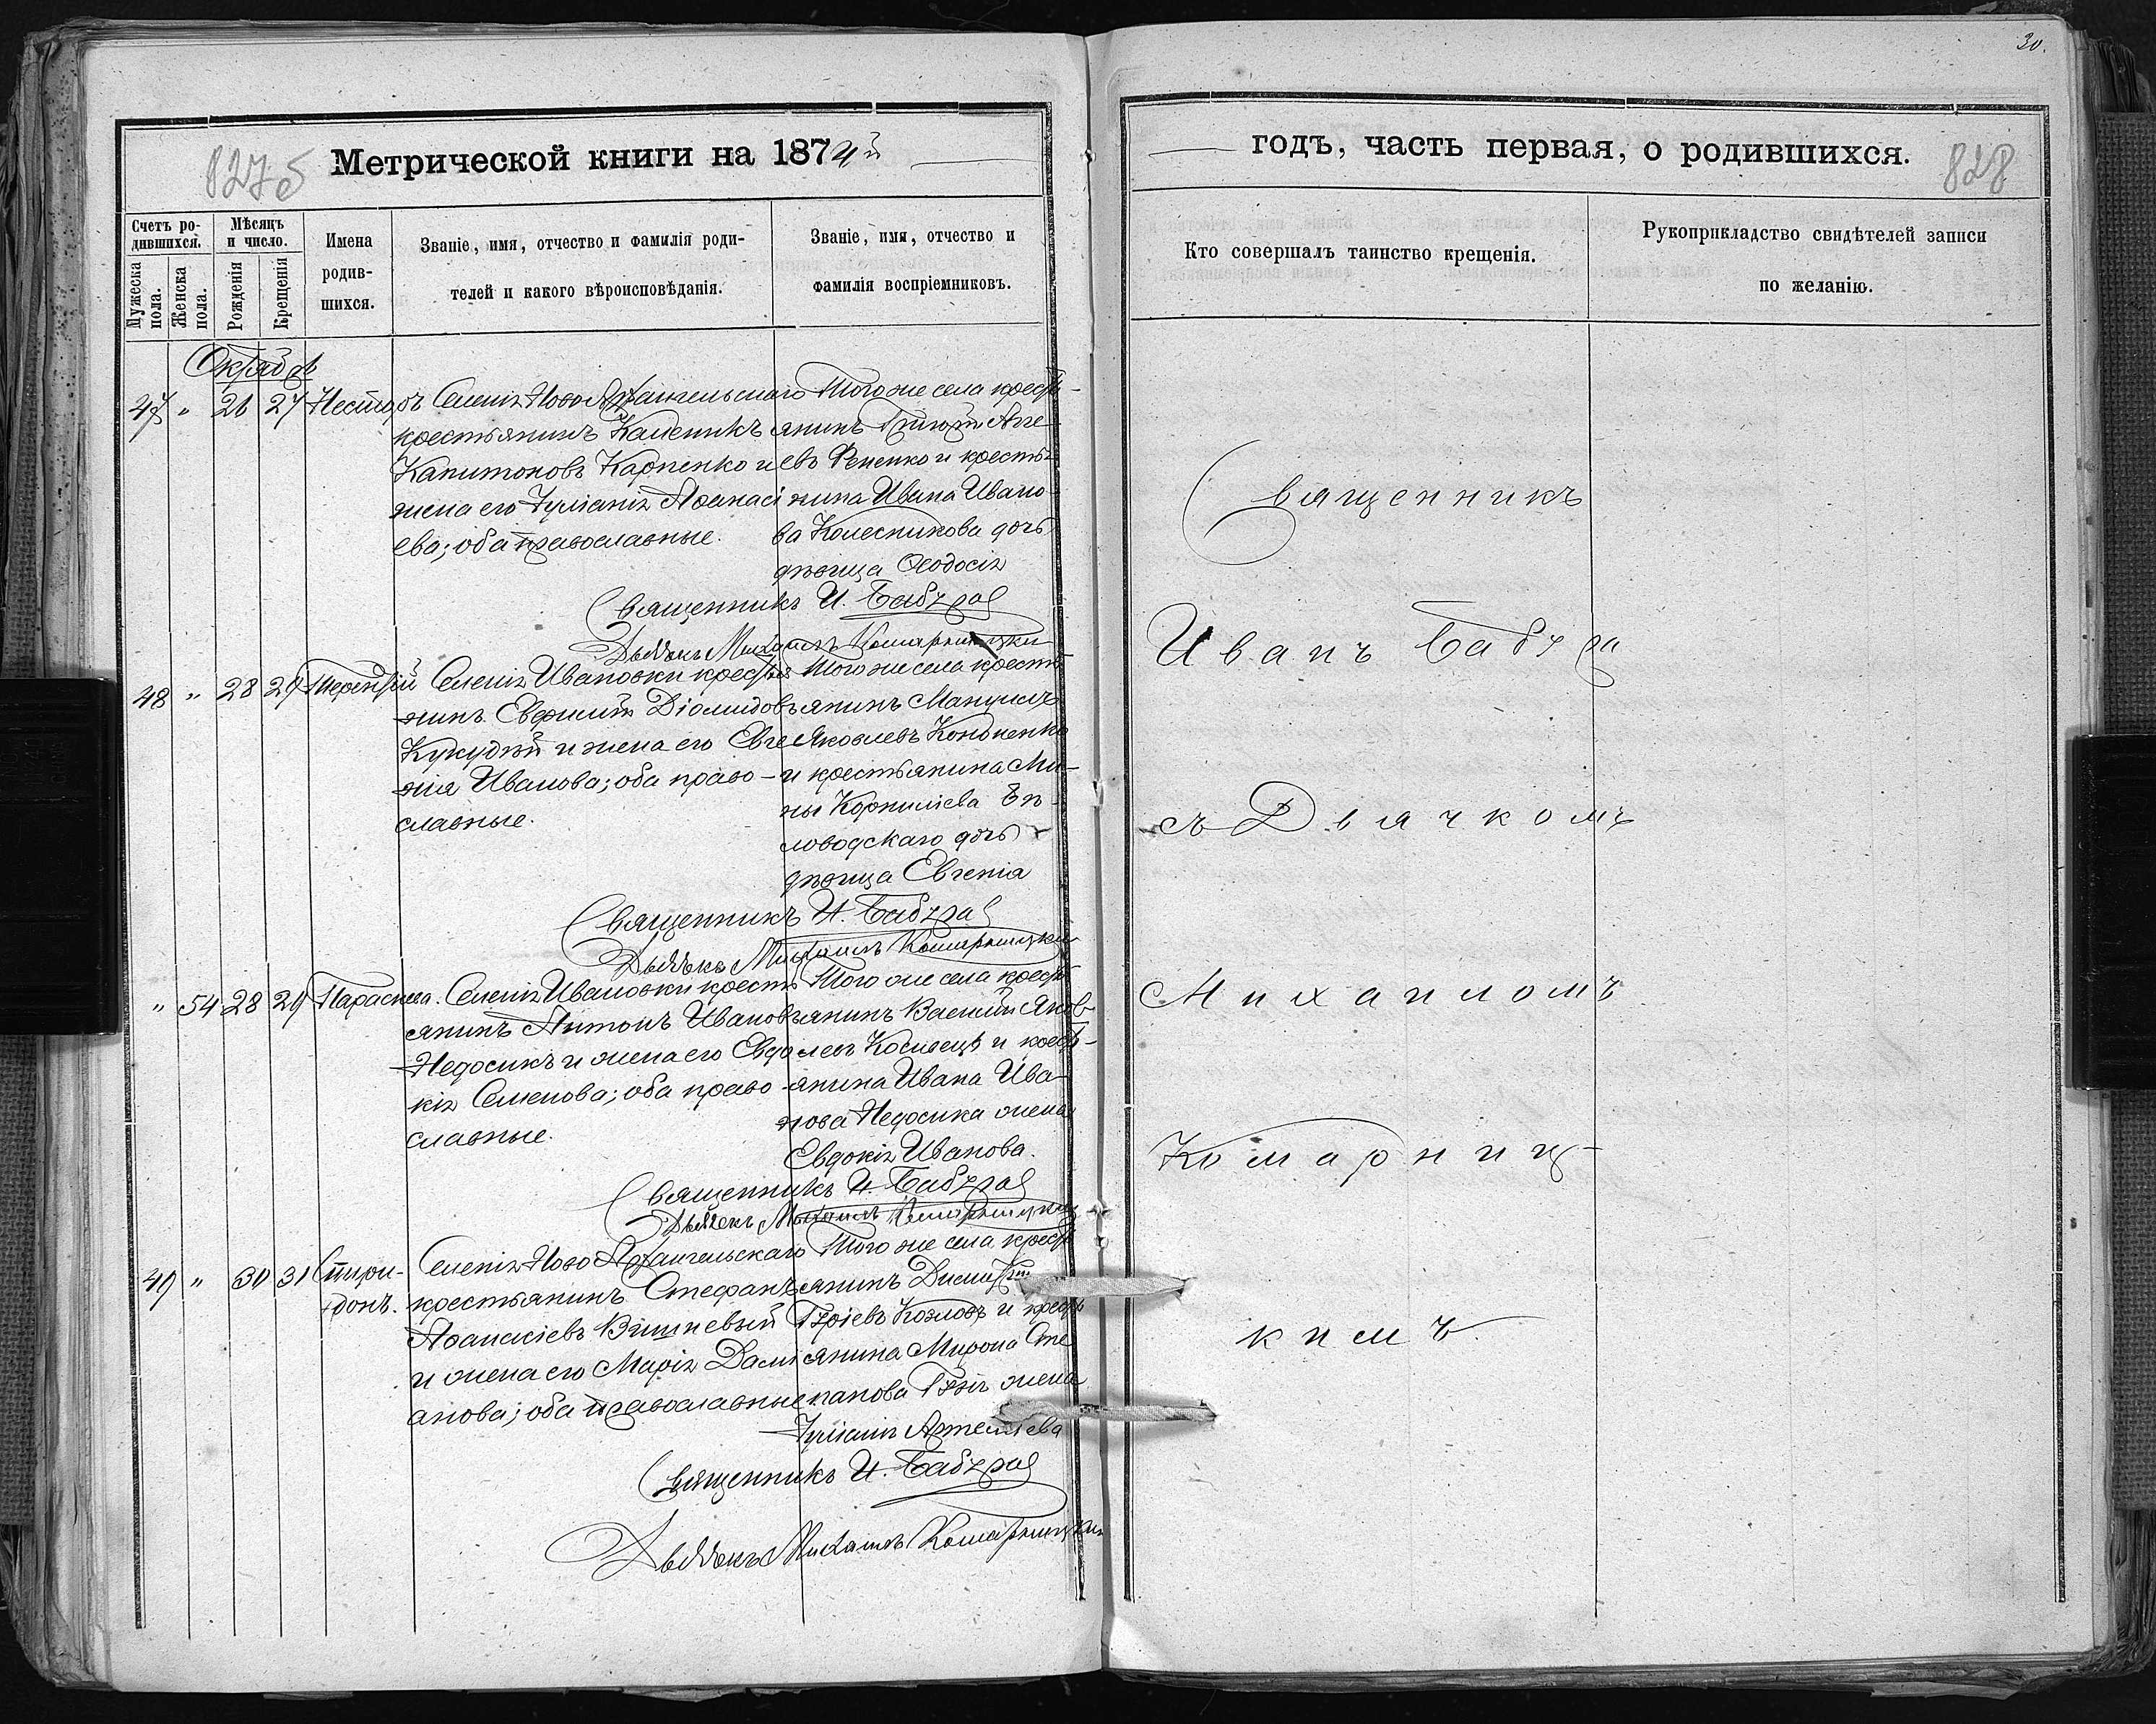 30.
Метрической книги на 1874й
годъ, часть первая, о родившихся.
827б
828
Счетъ ро-
дившихся.
Мѣсяцъ
и число.
Мужеска
пола.
Женска
пола.
Рожденія
Крещенія
Имена
родив-
шихся.
Званіе, имя, отчество и фамилія роди-
телей и какого вѣроисповѣданія.
Званіе, имя, отчество и
фамилія воспріемниковъ.
Кто совершалъ таинство крещенія.
Рукоприкладство свидѣтелей записи
по желанію.
47 " 26 27 Несторъ
Селенія Ново Архангельскаго
крестьянинъ Калиникъ
Капитоновъ Карпенко и
жена его Іуліанія Аѳанасі
ева; оба православные.
Того же села крест-
янинъ Григорій Агѣ-
евъ Фененко и кресть
янина Ивана Ивано-
ва Колесникова дочь
дѣвица Ѳеодосія
Священникъ И. Бабура
Дьячекъ Михаилъ Комарницкій
48 " 28 29 Терентій
Селенія Ивановки кресть
янинъ Евфимій Діомидовъ
и жена его Евге
нія Иванова; оба право-
славные.
Того же села кресть
янинъ Мануилъ
Яковлевъ Кононенко
и крестьянина Ми-
ны Корниліева Бѣ-
ловодскаго дочь
дѣвица Евгенія
Священникъ И. Бабура
Дьячекъ Михаилъ Комарницкій
" 54 28 29 Параскева.
Селенія Ивановки кресть
янинъ Антонъ Ивановъ
Недосикъ и жена его Евдо
кія Семенова; оба право-
славные.
Того же села крест
янинъ Василій Яков-
левъ и крест-
янина Ивана Ива-
нова Недосика жена
Евдокія Иванова.
Священникъ И. Бабура
Дьячекъ Михаилъ Комарницкій
49 " 30 31 Спири-
донъ.
Селенія Ново Архангельскаго
крестьянинъ Стефанъ
Аѳанасіевъ Вишневый
и жена его Марія Дамі
анова; оба православные
Того же села крест
янинъ Димитрій
Гуріевъ Козловъ и крест
янина Мирона Сте
панова жена
Іуліанія Артеміева
Священникъ И. Бабура
Дьячекъ Михаилъ Комарницкій
Священникъ
Иванъ Бабура
съ Дьячкомъ
Михаиломъ
Комарниц-
кимъ.